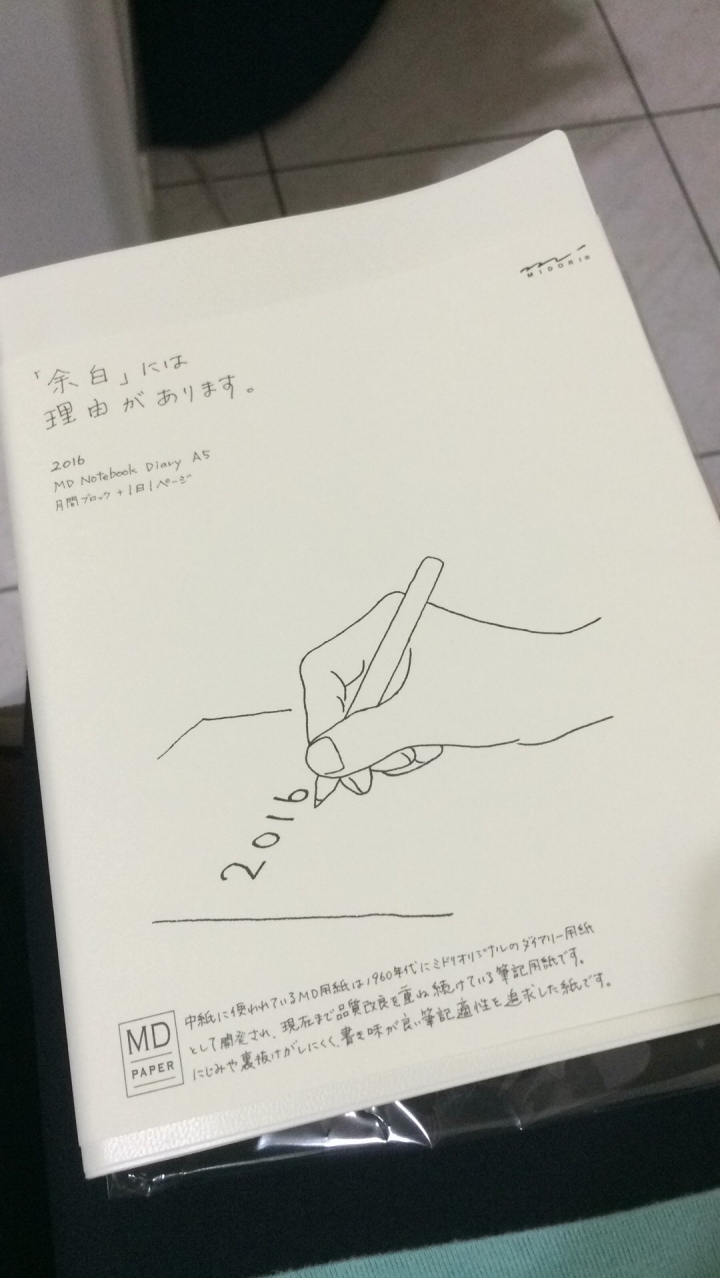 MIDORI®
「余白」には
理由があります。
2016
MD Notebook Diary A5
月間ブロック+1日1ページ
2016
中紙に使われているMD用紙は1960年代にミドリオリジナルのダイアリー用紙
として開発され、現在まで品質改良を重ね続けている筆記用紙です。
にじみや裏抜けがしにくく、書き味が良い筆記適性を追求した紙です。
MD
PAPER